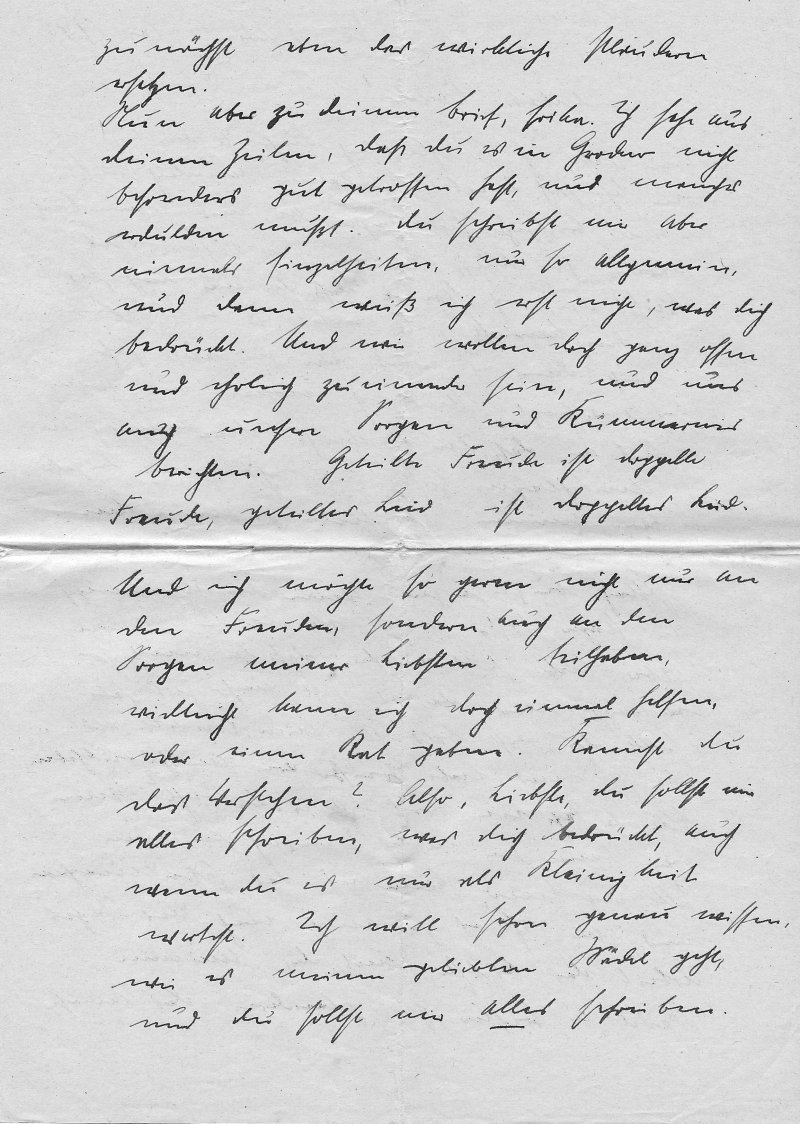 zunächst eben das wirkliche Plaudern
ersetzen.
Nun aber zu deinem Brief, Erika. Ich sehe aus
deinen Zeilen, daß du es in nicht
besonders gut getroffen hast, und manches
erdulden mußt. Du schreibst mir aber
niemals Einzelheiten, nur so allgemein,
und dann weiß ich erst nicht, was dich
bedrückt. Und wir wollen doch ganz offen
und ehrlich zueinander sein, und uns
auch unsere Sorgen und Kümmernis
berichten. Geteilte Freude ist doppelte
Freude, geteiltes Leid ist doppeltes Leid.
Und ich möchte so gerne nicht nur an
den Freuden, sondern auch an den
Sorgen meiner Liebsten teilhaben,
vielleicht kann ich doch einmal helfen,
oder einen Rat geben. Kannst du
das verstehen? Also, Liebste, du sollst mir
alles schreiben, was dich bedrückt, auch
wenn du es nur als Kleinigkeit
wertest. Ich will schon genau wissen,
wie es meinem geliebten Mädel geht,
und du sollst mir alles schreiben.